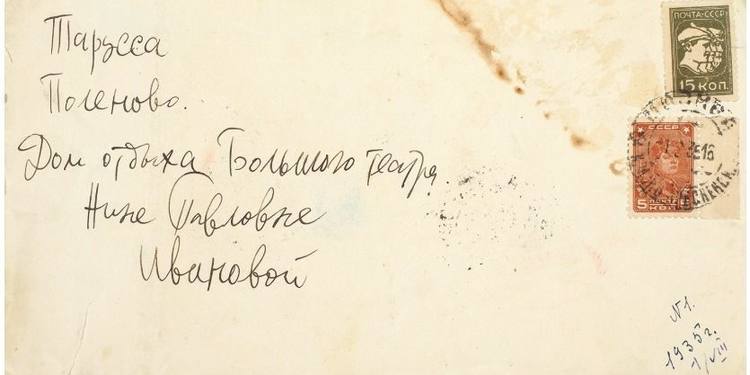 Тарусса
Поленово.
Дом отдыха Большого театра
Нине Павловне
Ивановой
ПОЧТА·СССР
15 КОП.
СССР
ПОЧТА
5 КОП.
N 1.
1935 г.
1/VIII